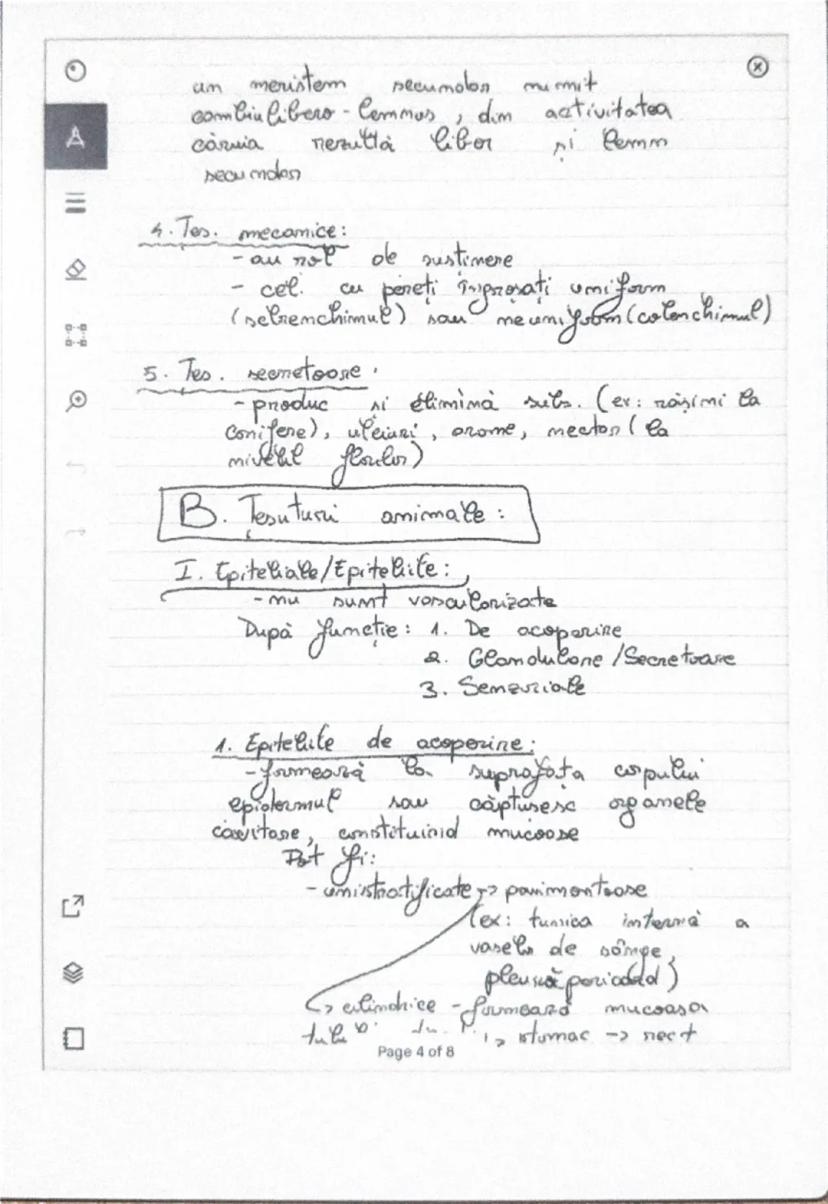 un meristem secundar numit
cambiu libero-lemnos, din activitatea
căruia rezultă liber și lemn
secundar
4. Țes. mecanice:
- au rol de susținere
- cel. cu pereți îngroșați uniform
(sclerenchimul) sau neuniform (colenchimul)
5. Țes. secretoare:
- produc și elimină subs. (ex: rășini la
conifere), uleiuri, arome, nectar (la
nivelul florilor)
B. Țesuturi animale:
I. Epiteliale/Epiteliile:
- nu sunt vascularizate
După funcție: 1. De acoperire
2. Glandulare/Secretoare
3. Senzoriale
1. Epiteliile de acoperire:
- formează la suprafața corpului
epidermul sau căptușesc organele
cavitare, constituind mucoase
Pot fi:
- unistratificate -> pavimentoase
(ex: tunica internă a
vaselor de sânge,
pleură pericard)
-> cilindrice - formează mucoasa
stomac -> rect
Page 4 of 8